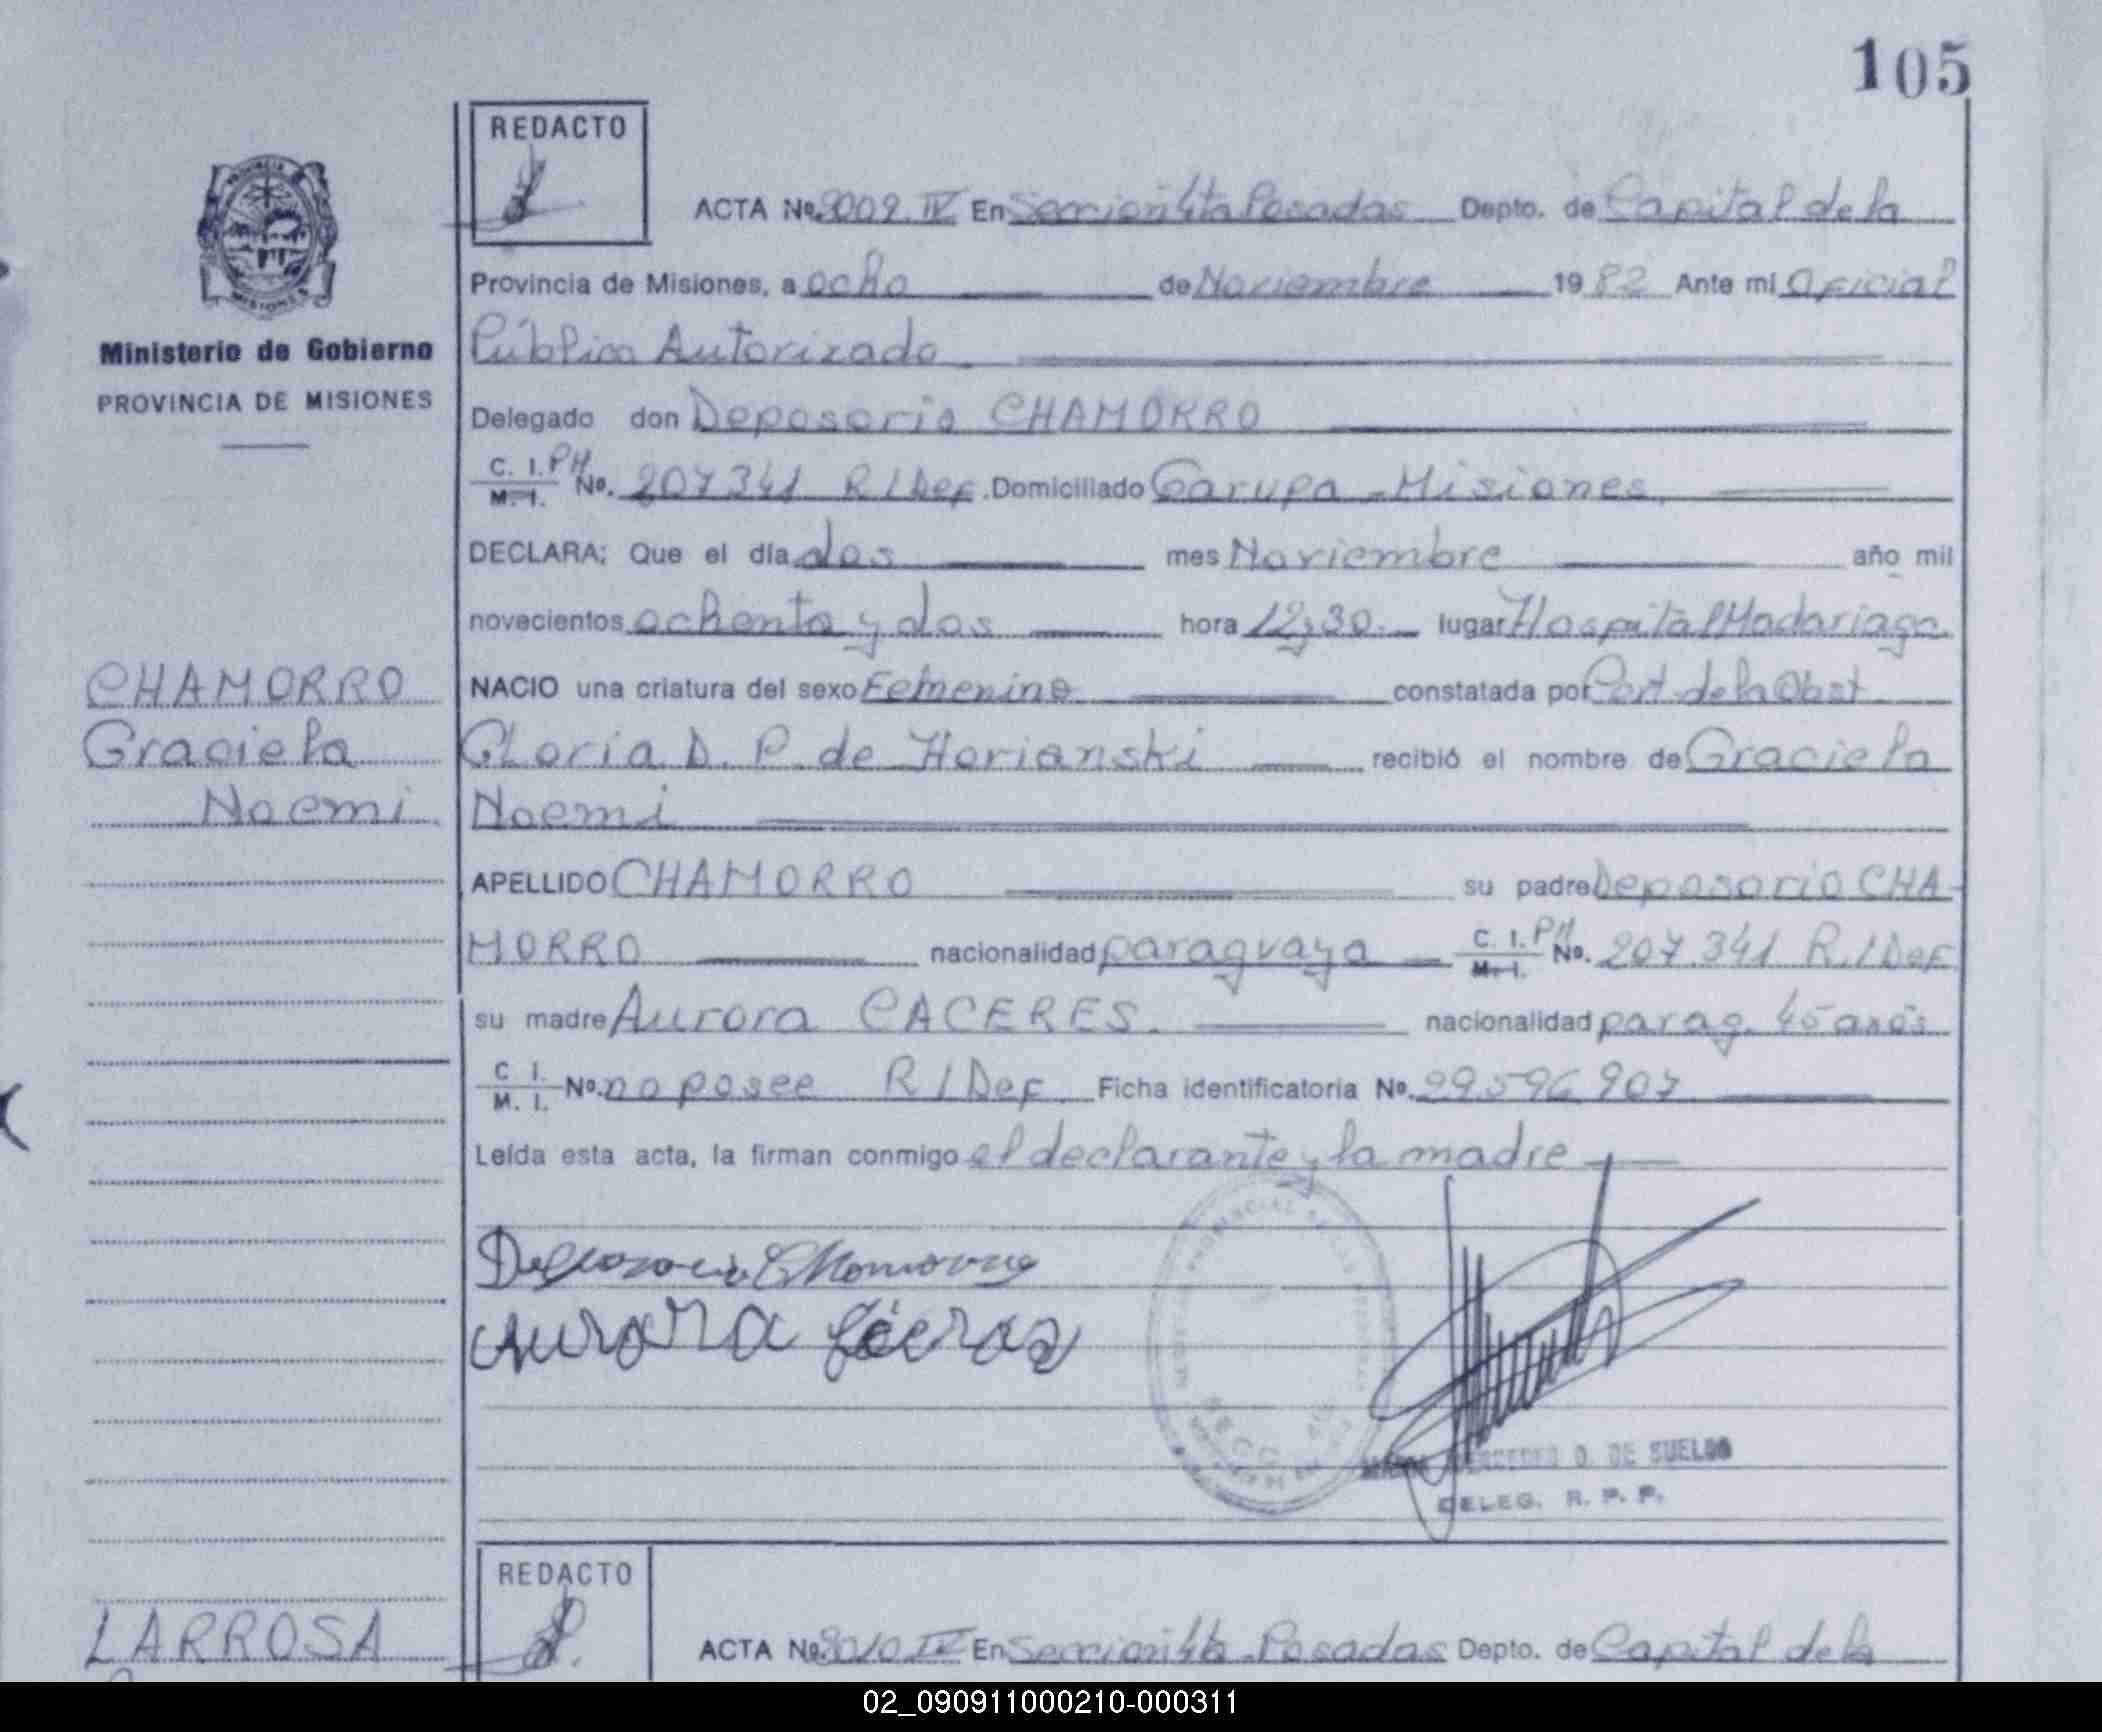 105
REDACTO
ACTA Nº 2009. IV En Sección 4ta Posadas Depto. de Capital de la
Provincia de Misiones, a ocho de Noviembre 1982 Ante mi Oficial
Ministerio de Gobierno
PROVINCIA DE MISIONES
Público Autorizado
Delegado don Deposorio CHAMORRO
C. I. PH
M. I. Nº. 207341 R/Def. Domiciliado Garupa - Misiones
DECLARA: Que el día dos mes Noviembre año mil
novecientos ochenta y dos hora 12,30 lugar Hospital Madariaga
CHAMORRO
Graciela
Noemi
NACIO una criatura del sexo Femenino constatada por Cert. de la Obst
Gloria D. P. de Horianski recibió el nombre de Graciela
Noemi
APELLIDO CHAMORRO su padre Deposorio CHA-
MORRO nacionalidad paraguaya C. I. PH
M. I. Nº. 207.341 R./Def
su madre Aurora CACERES. nacionalidad parag. 45 anos
C I.
M. I. Nº. no posee R/Def. Ficha identificatoria Nº. 29.596.907
Leída esta acta, la firman conmigo el declarante y la madre
Aurora
MERCEDES O. DE SUELDO
DELEG. R. P. P.
REDACTO
LARROSA
ACTA Nº 2010 IV En Sección 4ta. Posadas Depto. de Capital de la
02_090911000210-000311